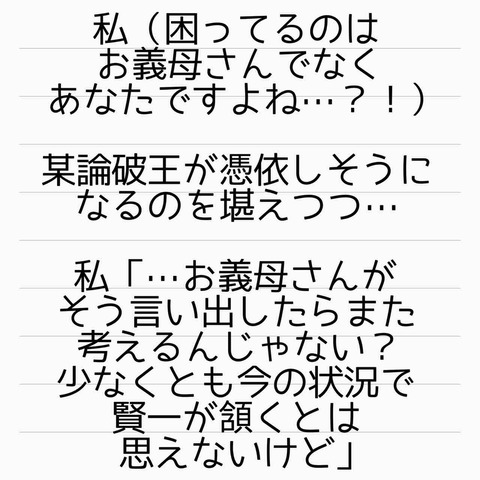 私（困ってるのは
お義母さんでなく
あなたですよね…？！）
某論破王が憑依しそうに
なるのを堪えつつ…
私「…お義母さんが
そう言い出したらまた
考えるんじゃない？
少なくとも今の状況で
賢一が頷くとは
思えないけど」